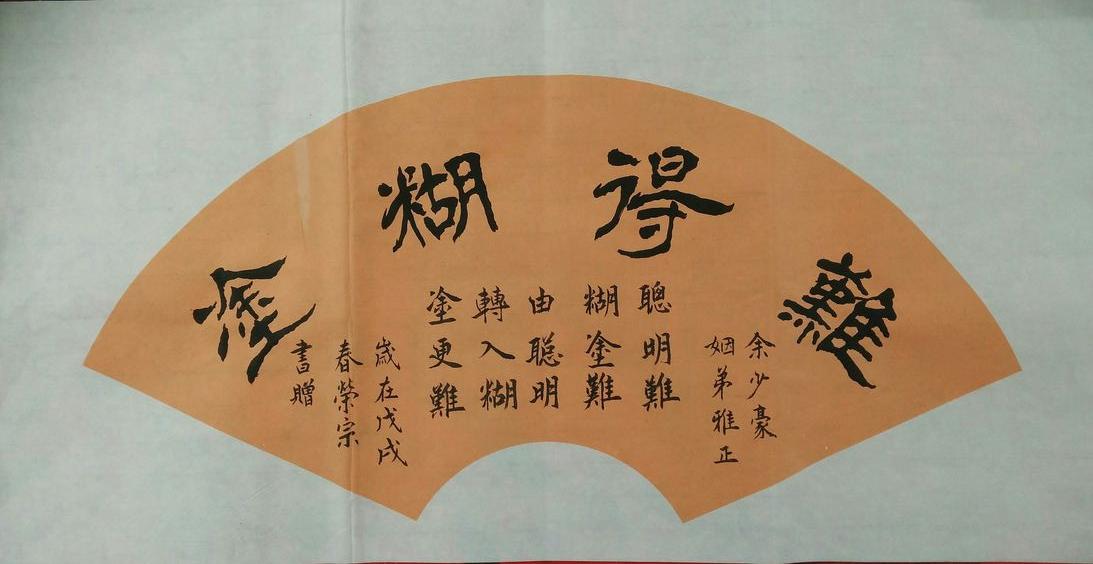 難得糊塗
余少豪
姻弟雅正
聰明難
糊塗難
由聰明
轉入糊
塗更難
歲在戊戌
春榮宗
書贈